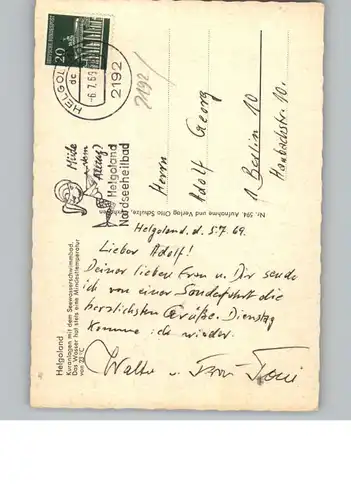 DEUTSCHE BUNDESPOST
20
HELGOL
dc
-6.7.69
2192
2192
Müde
Helgoland
Nordseeheilbad
Herrn
Adolf Georg
1 Berlin 10
Helgoland
Kuranlagen mit dem Seewasserschwimmbad.
Das Wasser hat stets eine Mindesttemperatur
von 23 °C
Nr. 594. Aufnahme und Verlag Otto Schulze,
Helgoland. d. 5.7.69.
Lieber Adolf!
Deiner lieben Frau u. Dir sende
ich von einer Sonderfahrt die
herzlichsten Grüße. Dienstag
komme ich wieder.
Walter u. Frau Toni